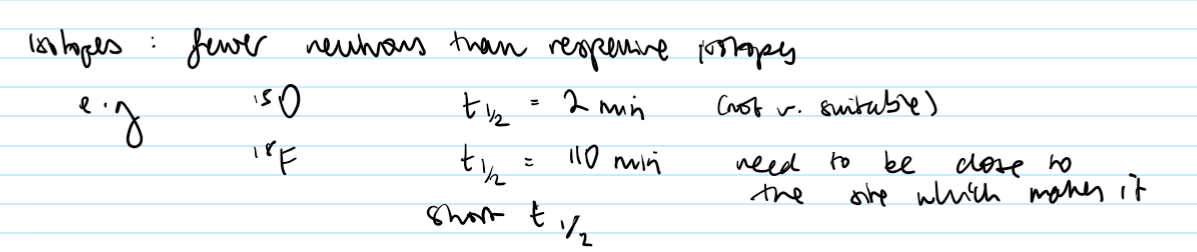 isotopes : fewer neutrons than respective isotopes
e.g ¹⁵O t 1/2 = 2 min (not v. suitable)
¹⁸F t 1/2 = 110 min need to be close to
the site which makes it
short t 1/2